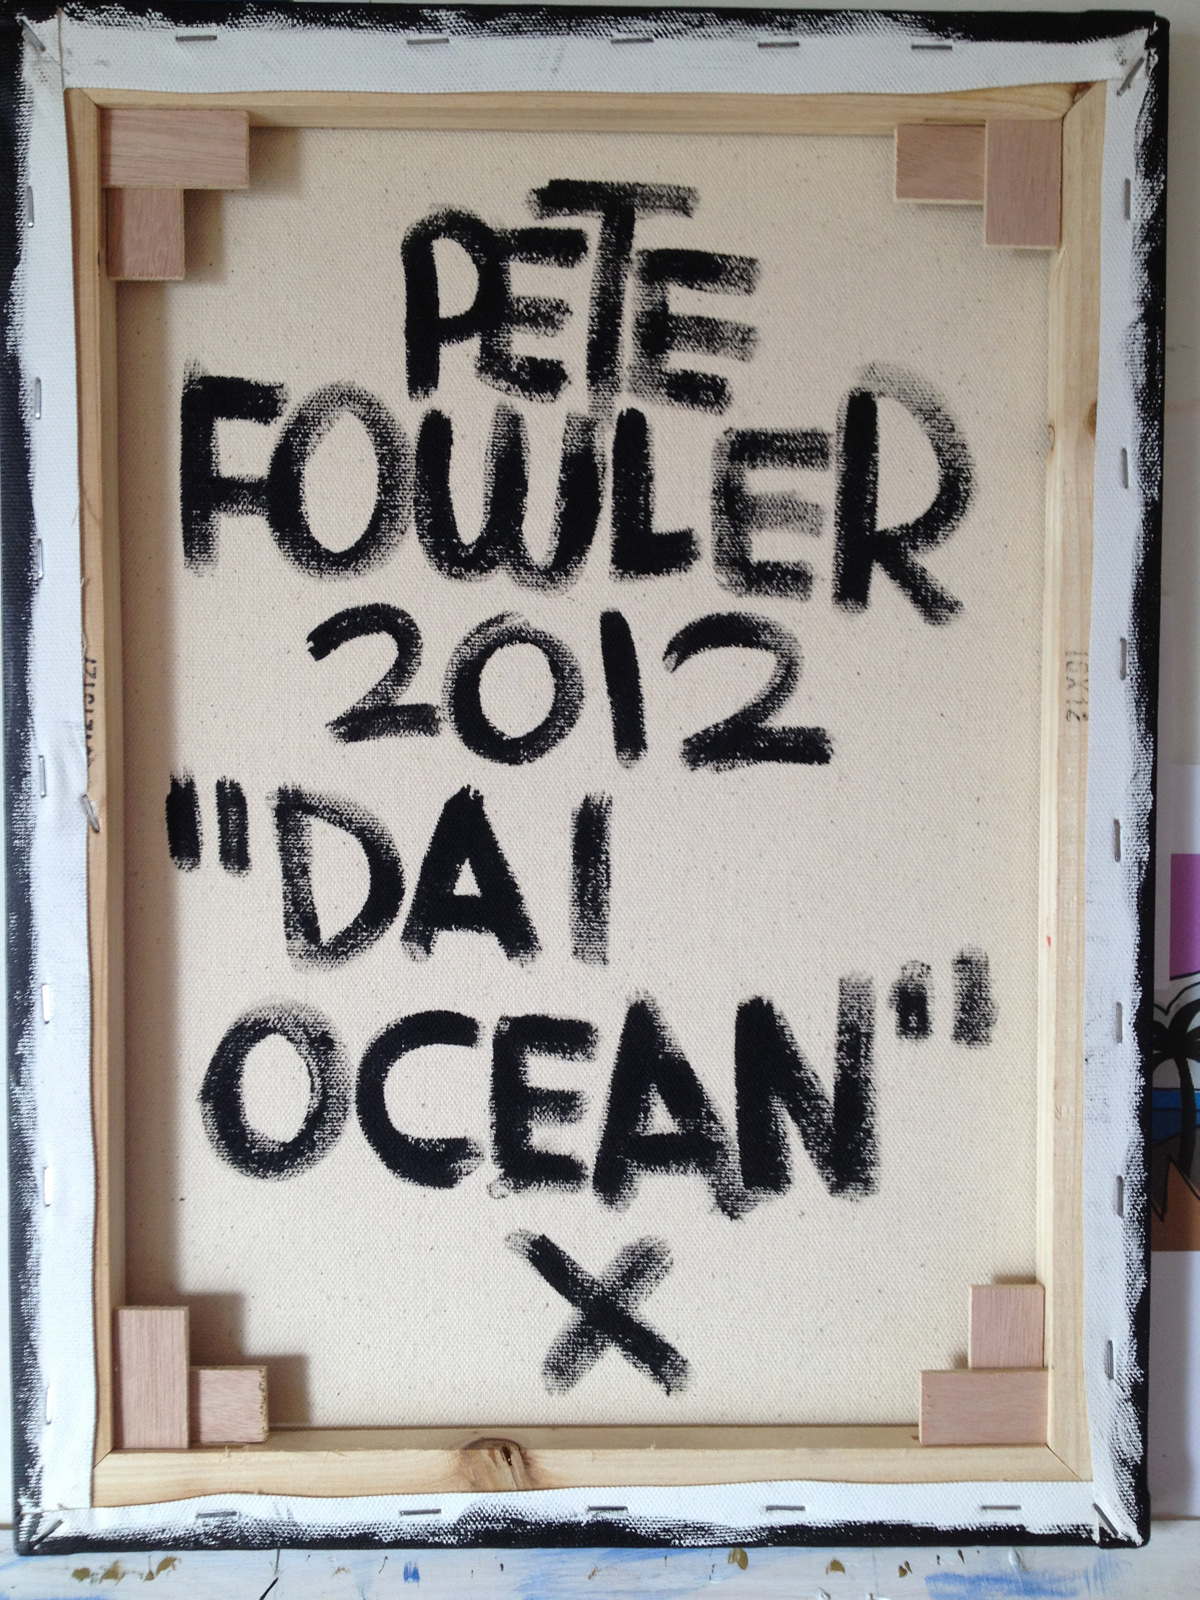 PETE
FOWLER
2012
"DAI
OCEAN"
X
16X12